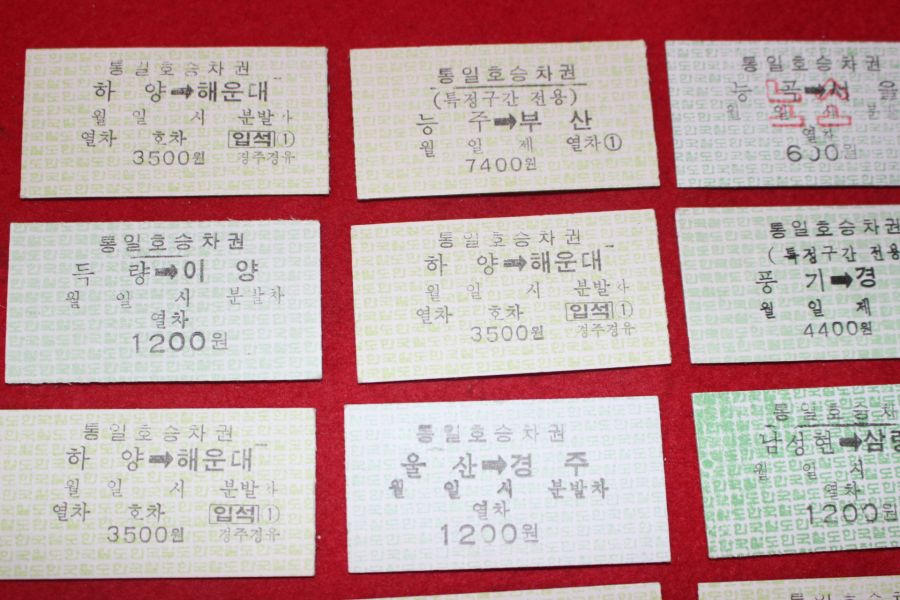 통일호승차권
하 양➡해운대
월 일 시 분발차
열차 호차 입석①
3500원 경주경유
통일호승차권
(특정구간 전용)
능 주➡부 산
월 일 제 열차①
7400원
통일호승차권
능 곡➡서 울
월 일 시 분
열차
600원
통일호승차권
득 량➡이 양
월 일 시 분발차
열차
1200원
통일호승차권
하 양➡해운대
월 일 시 분발차
열차 호차 입석①
3500원 경주경유
통일호승차권
(특정구간 전용
풍 기➡경
월 일 제
4400원
통일호승차권
하 양➡해운대
월 일 시 분발차
열차 호차 입석①
3500원 경주경유
통일호승차권
울 산➡경 주
월 일 시 분발차
열차
1200원
통일호승차
남성현➡삼랑
월 일 시
열차
1200원